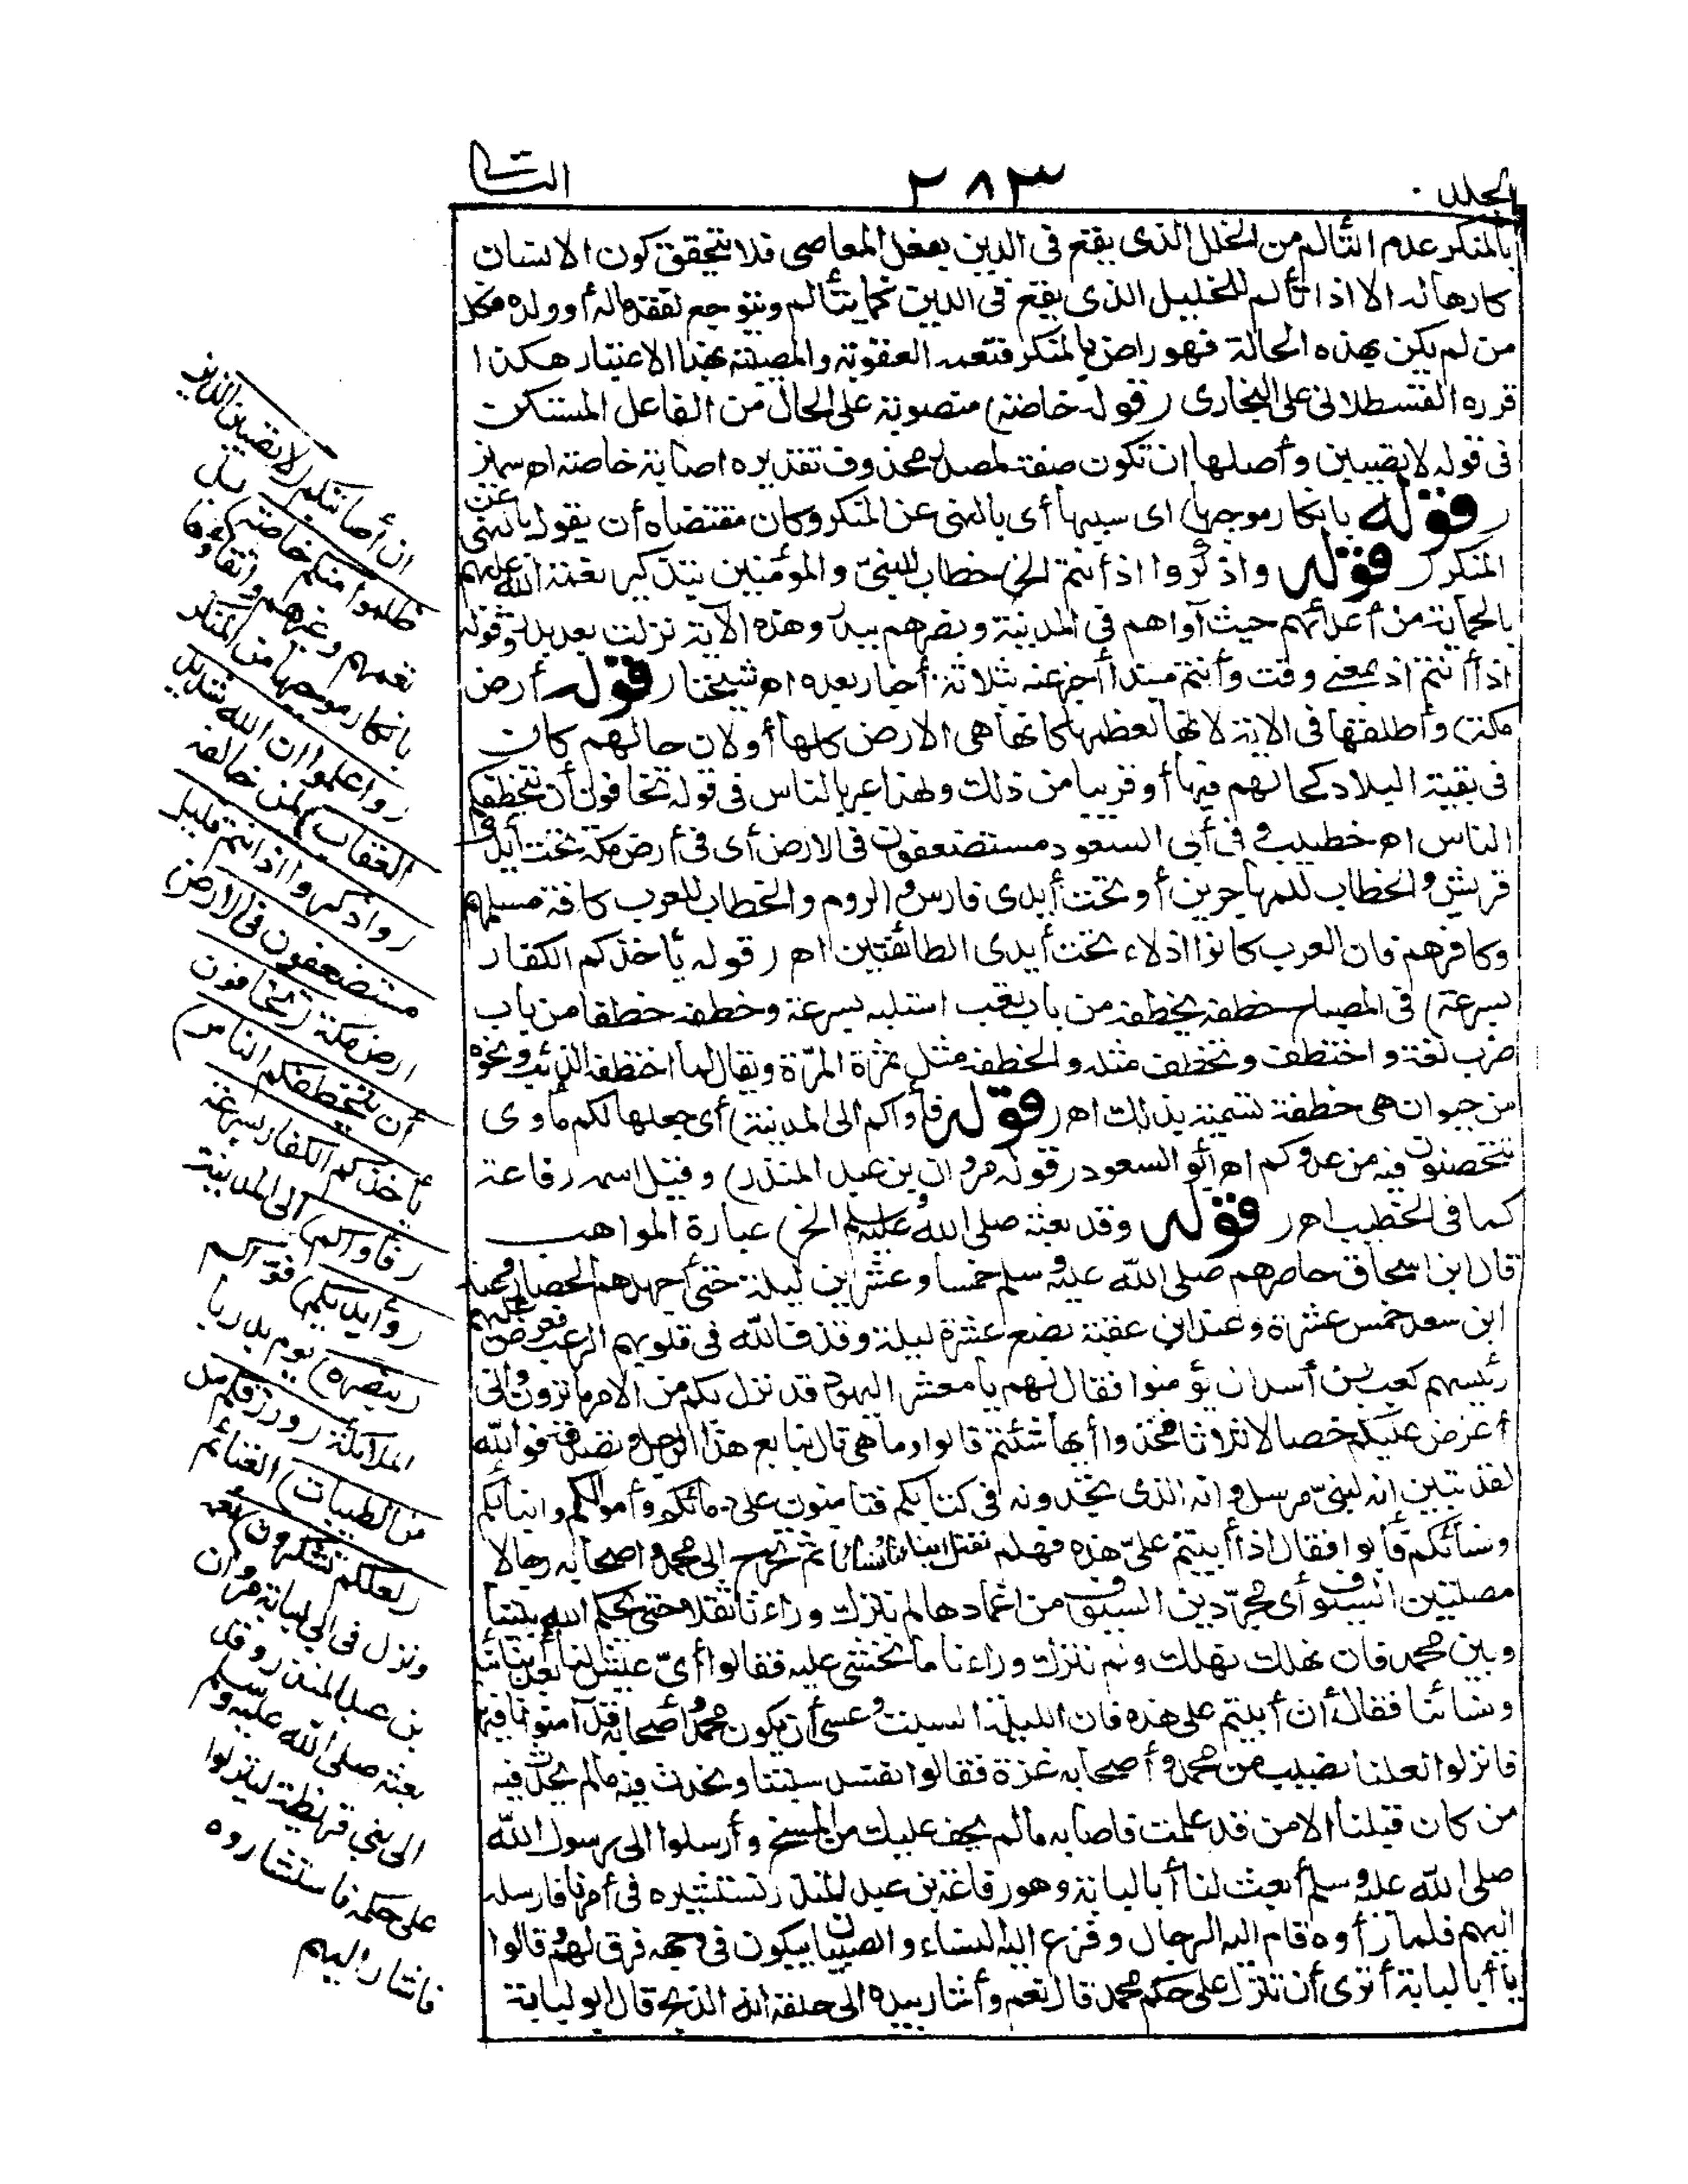 المجلد
٢٨٣
الثانى
بالمنكر عدم التألم من الخلل الذى يقع فى الدين بفعل المعاصى فلا يتحقق كون الانسان
كارها له الا اذا تألم للخلل الذى يقع فى الدين كما يتألم ويتوجع لفقد ماله أو ولده فكل
من لم يكن بهذه الحالة فهو راض بالمنكر فتعمه العقوبة والمصيبة بهذا الاعتبار هكذا
قرره القسطلانى على البخارى (قوله خاصة) منصوبة على الحال من الفاعل المستكن
فى قوله لا تصيبن وأصلها ان تكون صفة لمصدر محذوف تقديره اصابة خاصة اه سمين
(قوله بانكار موجبها) اى سببها أى بالنهى عن المنكر وكان مقتضاه أن يقول بالنهى عن
المنكر (قوله واذكروا اذ أنتم الخ) خطاب للنبىّ والمؤمنين بتذكير نعمة الله عليهم
بالحماية من أعدائهم حيث آواهم فى المدينة ونصرهم ببدر وهذه الآية نزلت بعد بدر وقوله
اذ أنتم اذ بمعنى وقت وأنتم مبتدأ أخبر عنه بثلاثة أخبار بعده اه شيخنا (قوله أرض
مكة) وأطلقها فى الآية لانها لعظمها كانها هى الارض كلها أو لان حالهم كان
فى بقية البلاد كحالهم فيها أو قريبا من ذلك ولهذا عبر بالناس فى قوله تخافون أن يتخطفكم
الناس اه خطيب وفى أبى السعود مستضعفون فى الارض أى فى أرض مكة تحت أيدى
قريش والخطاب للمهاجرين أو تحت أيدى فارس والروم والخطاب للعرب كافة مسلمهم
وكافرهم فان العرب كانوا اذلاء تحت أيدى الطائفتين اه (قوله يأخذكم الكفار
بسرعة) فى المصباح خطفه يخطفه من باب تعب استلبه بسرعة وخطفه خطفا من باب
ضرب لغة واختطف وتخطف مثله والخطفة مثل تمرة المرّة ويقال لما اختطفه الذئب ونحوه
من حيوان هى خطفة تسمية بذلك اه (قوله فأواكم الى المدينة) أى جعلها لكم مأوى
تتحصنون فيه من عدوكم اه أبو السعود (قوله مروان بن عبد المنذر) وقيل اسمه رفاعة
كما فى الخطيب اه (قوله وقد بعثه صلى الله عليه وسلم الخ) عبارة المواهب
قال ابن اسحاق حاصرهم صلى الله عليه وسلم خمسا وعشرين ليلة حتى أجهدهم الحصار وعند
ابن سعد خمس عشرة وعند ابن عقبة بضع عشرة ليلة وقذف الله فى قلوبهم الرعب فعرض عليهم
رئيسهم كعب بن أسد ان يؤمنوا فقال لهم يا معشر اليهود قد نزل بكم من الامر ما ترون وانى
أعرض عليكم خصالا ثلاثا فخذوا أيها شئتم قالوا وما هى قال نبايع هذا الرجل ونصدقه فوالله
لقد تبين انه لنبىّ مرسل وانه الذى تجدونه فى كتابكم فتأمنون على دمائكم وأموالكم وابنائكم
ونسائكم فأبوا فقال اذا أبيتم علىّ هذه فهلم نقتل ابناءنا ونساءنا ثم نخرج الى محمد واصحابه رجالا
مصلتين السيوف أى مجرّدين السيوف من اغمادها لم نترك وراءنا ثقلا حتى يحكم الله بيننا
وبين محمد فان نهلك نهلك ولم نترك وراءنا ما نخشى عليه فقالوا أىّ عيش لنا بعد أبنائنا
ونسائنا فقال ان أبيتم على هذه فان الليلة السبت وعسى أن يكون محمد وأصحابه قد آمنونا فيها
فانزلوا لعلنا نصيب من محمد وأصحابه غرة فقالوا نفسد سبتنا ونحدث فيه ما لم يحدث فيه
من كان قبلنا الا من قد علمت فأصابه ما لم يخف عليك من المسخ وأرسلوا الى رسول الله
صلى الله عليه وسلم أبعث لنا أبا لبابة وهو رفاعة بن عبد المنذر نستشيره فى أمرنا فارسله
اليهم فلما رأوه قام اليه الرجال وفزع اليه النساء والصبيان يبكون فى وجهه فرق لهم وقالوا
يا أبا لبابة أترى أن ننزل على حكم محمد قال نعم وأشار بيده الى حلقه انه الذبح قال ابو لبابة
ان أصابتكم (لا تصيبن الذين
ظلموا منكم خاصة) بل
تعمهم وغيرهم واتقاؤها
بانكار موجبها من المنكر
(واعلموا ان الله شديد
العقاب) لمن خالفه
(واذكروا اذ أنتم قليل
مستضعفون فى الارض)
ارض مكة (تخافون
أن يتخطفكم الناس)
يأخذكم الكفار بسرعة
(فأواكم) الى المدينة
(وأيدكم) قوّاكم
(بنصره) يوم بدر با
لملائكة (ورزقكم
من الطيبات) الغنائم
(لعلكم تشكرون) نعمه
ونزل فى ابى لبابة مروان
بن عبد المنذر وقد
بعثه صلى الله عليه وسلم
الى بنى قريظة لينزلوا
على حكمه فاستشاروه
فاشار اليهم